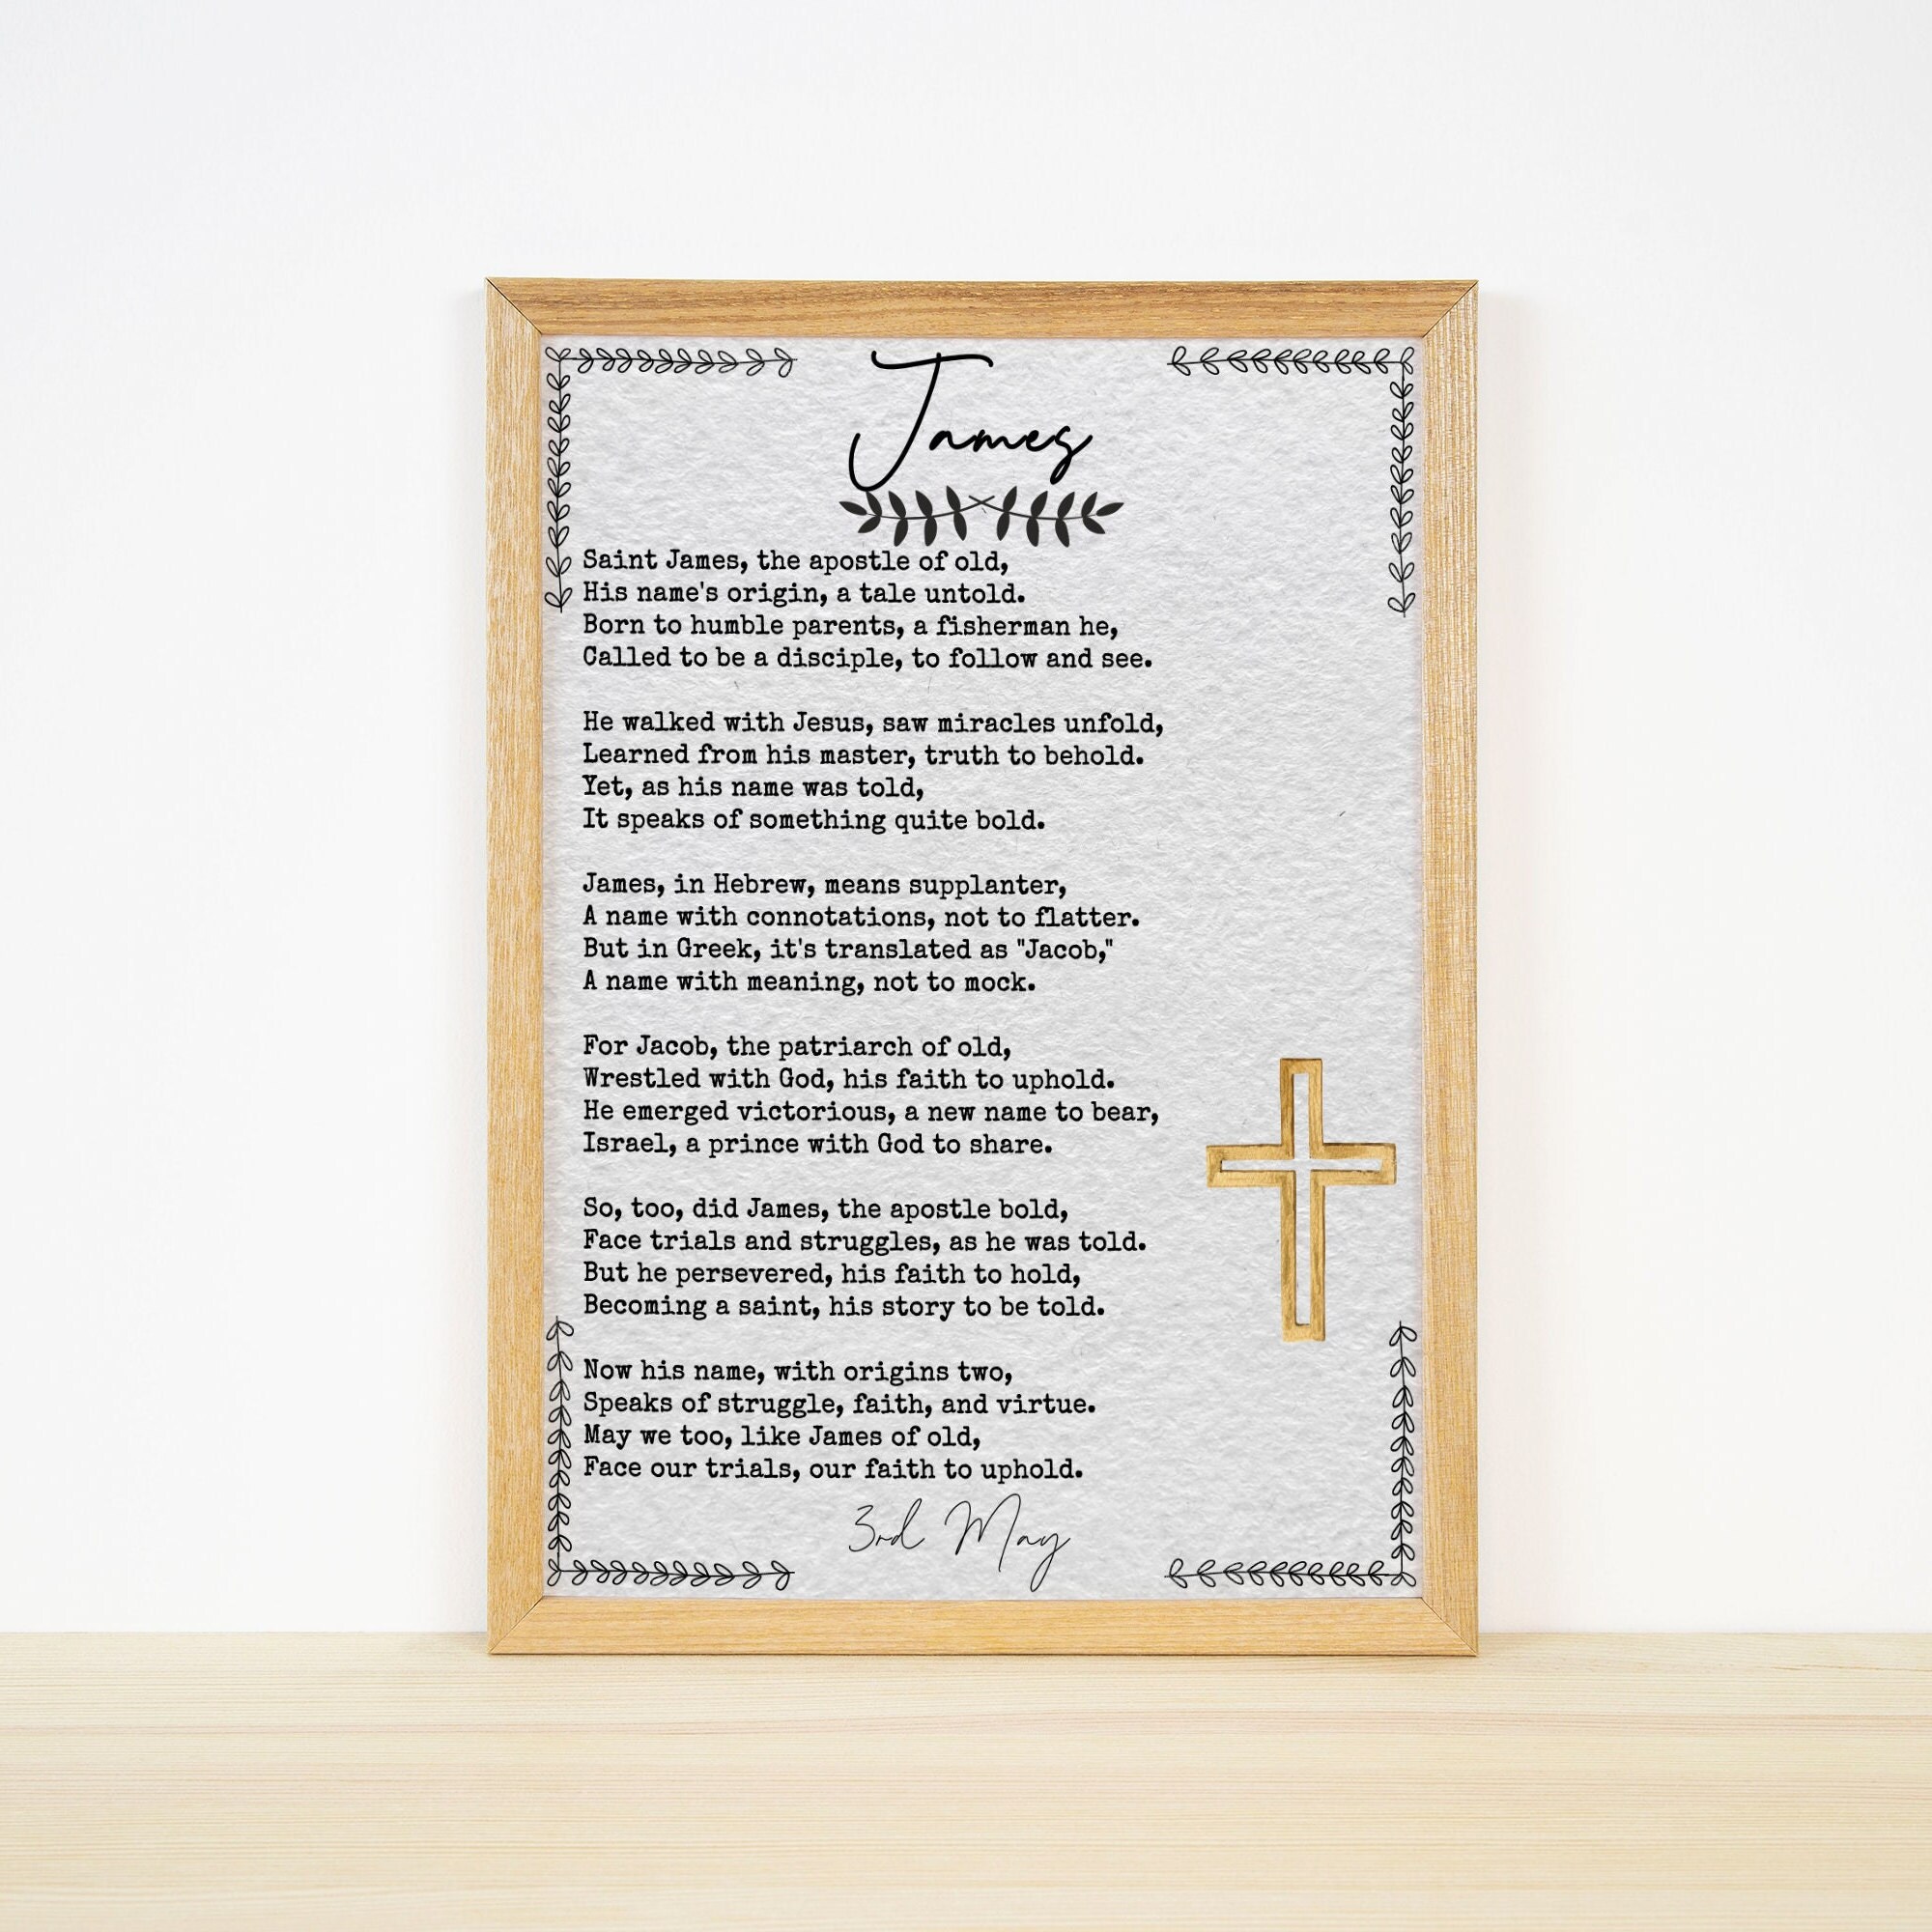 James
Saint James, the apostle of old,
His name's origin, a tale untold.
Born to humble parents, a fisherman he,
Called to be a disciple, to follow and see.
He walked with Jesus, saw miracles unfold,
Learned from his master, truth to behold.
Yet, as his name was told,
It speaks of something quite bold.
James, in Hebrew, means supplanter,
A name with connotations, not to flatter.
But in Greek, it's translated as "Jacob,"
A name with meaning, not to mock.
For Jacob, the patriarch of old,
Wrestled with God, his faith to uphold.
He emerged victorious, a new name to bear,
Israel, a prince with God to share.
So, too, did James, the apostle bold,
Face trials and struggles, as he was told.
But he persevered, his faith to hold,
Becoming a saint, his story to be told.
Now his name, with origins two,
Speaks of struggle, faith, and virtue.
May we too, like James of old,
Face our trials, our faith to uphold.
3rd May